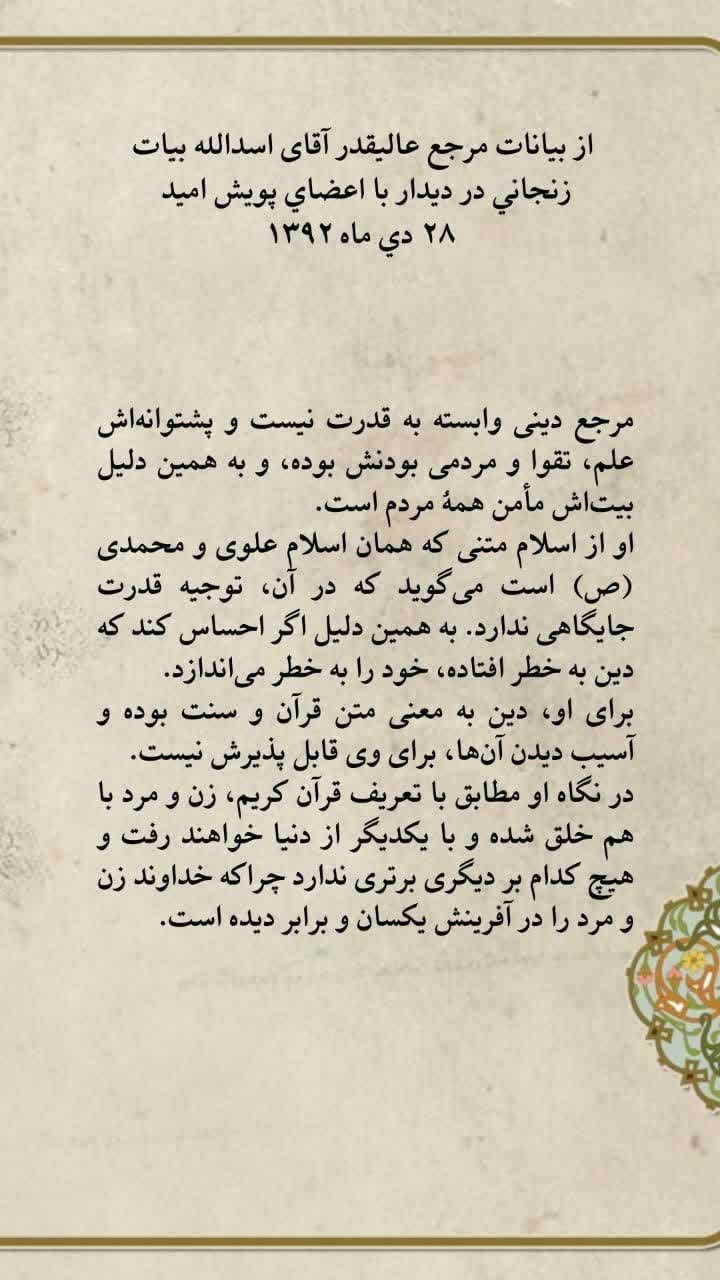 از بیانات مرجع عالیقدر آقای اسدالله بیات
زنجاني در دیدار با اعضاي پویش امید
۲۸ دي ماه ۱۳۹۲
مرجع دینی وابسته به قدرت نیست و پشتوانه‌اش
علم، تقوا و مردمی بودنش بوده، و به همین دلیل
بیت‌اش مأمن همهٔ مردم است.
او از اسلام متنی که همان اسلام علوی و محمدی
(ص) است می‌گوید که در آن، توجیه قدرت
جایگاهی ندارد. به همین دلیل اگر احساس کند که
دین به خطر افتاده، خود را به خطر می‌اندازد.
برای او، دین به معنی متن قرآن و سنت بوده و
آسیب دیدن آن‌ها، برای وی قابل پذیرش نیست.
در نگاه او مطابق با تعریف قرآن کریم، زن و مرد با
هم خلق شده و با یکدیگر از دنیا خواهند رفت و
هیچ کدام بر دیگری برتری ندارد چراکه خداوند زن
و مرد را در آفرینش یکسان و برابر دیده است.